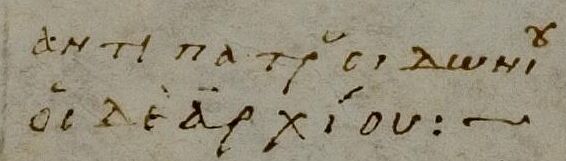 ἀντιπάτρου σιδωνίου
οἱ δὲ ἀρχίου:~